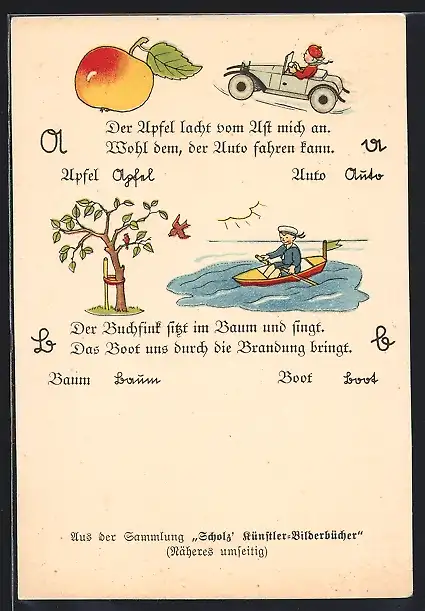 Der Apfel lacht vom Ast mich an.
A Wohl dem, der Auto fahren kann. A
Apfel Apfel Auto Auto
Der Buchfink sitzt im Baum und singt.
B Das Boot uns durch die Brandung bringt. B
Baum Baum Boot Boot
Aus der Sammlung „Scholz' Künstler-Bilderbücher"
(Näheres umseitig)